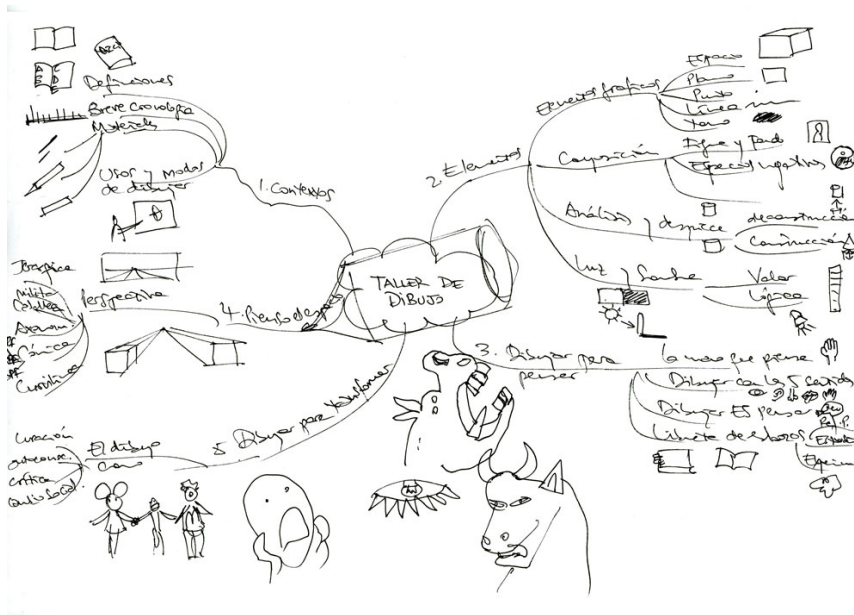 TALLER DE
DIBUJO
1. Contextos
Definiciones
Breve cronología
Materiales
Usos y modos
de dibujar
2. Elementos
Elementos gráficos
Espacio
Plano
Punto
Línea
Tono
Composición
Figura y fondo
Espacios negativos
Análisis y despiece
deconstrucción
Construcción
Luz y Sombra
Valor
Lógica
3. Dibujar para
pensar
La mano que piensa
Dibujar con los 5 sentidos
Dibujar ES pensar
Libreta de esbozos
4.
Perspectiva
militar
Caballera
Axonom.
Cónica
Curvilínea
5. Dibujar para transformar
El dibujo
como
Curación
crítica